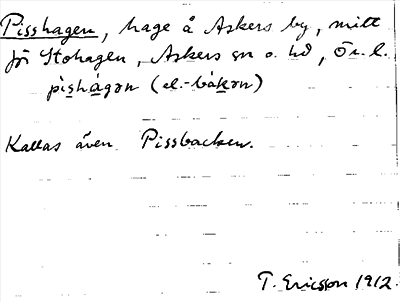 Pisshagen, hage å Askers by, mitt
för Stohagen, Askers sn o. hd, Ör. l.
pìshágən (el. -bákən)
Kallas även Pissbacken.
T. Ericsson 1912.